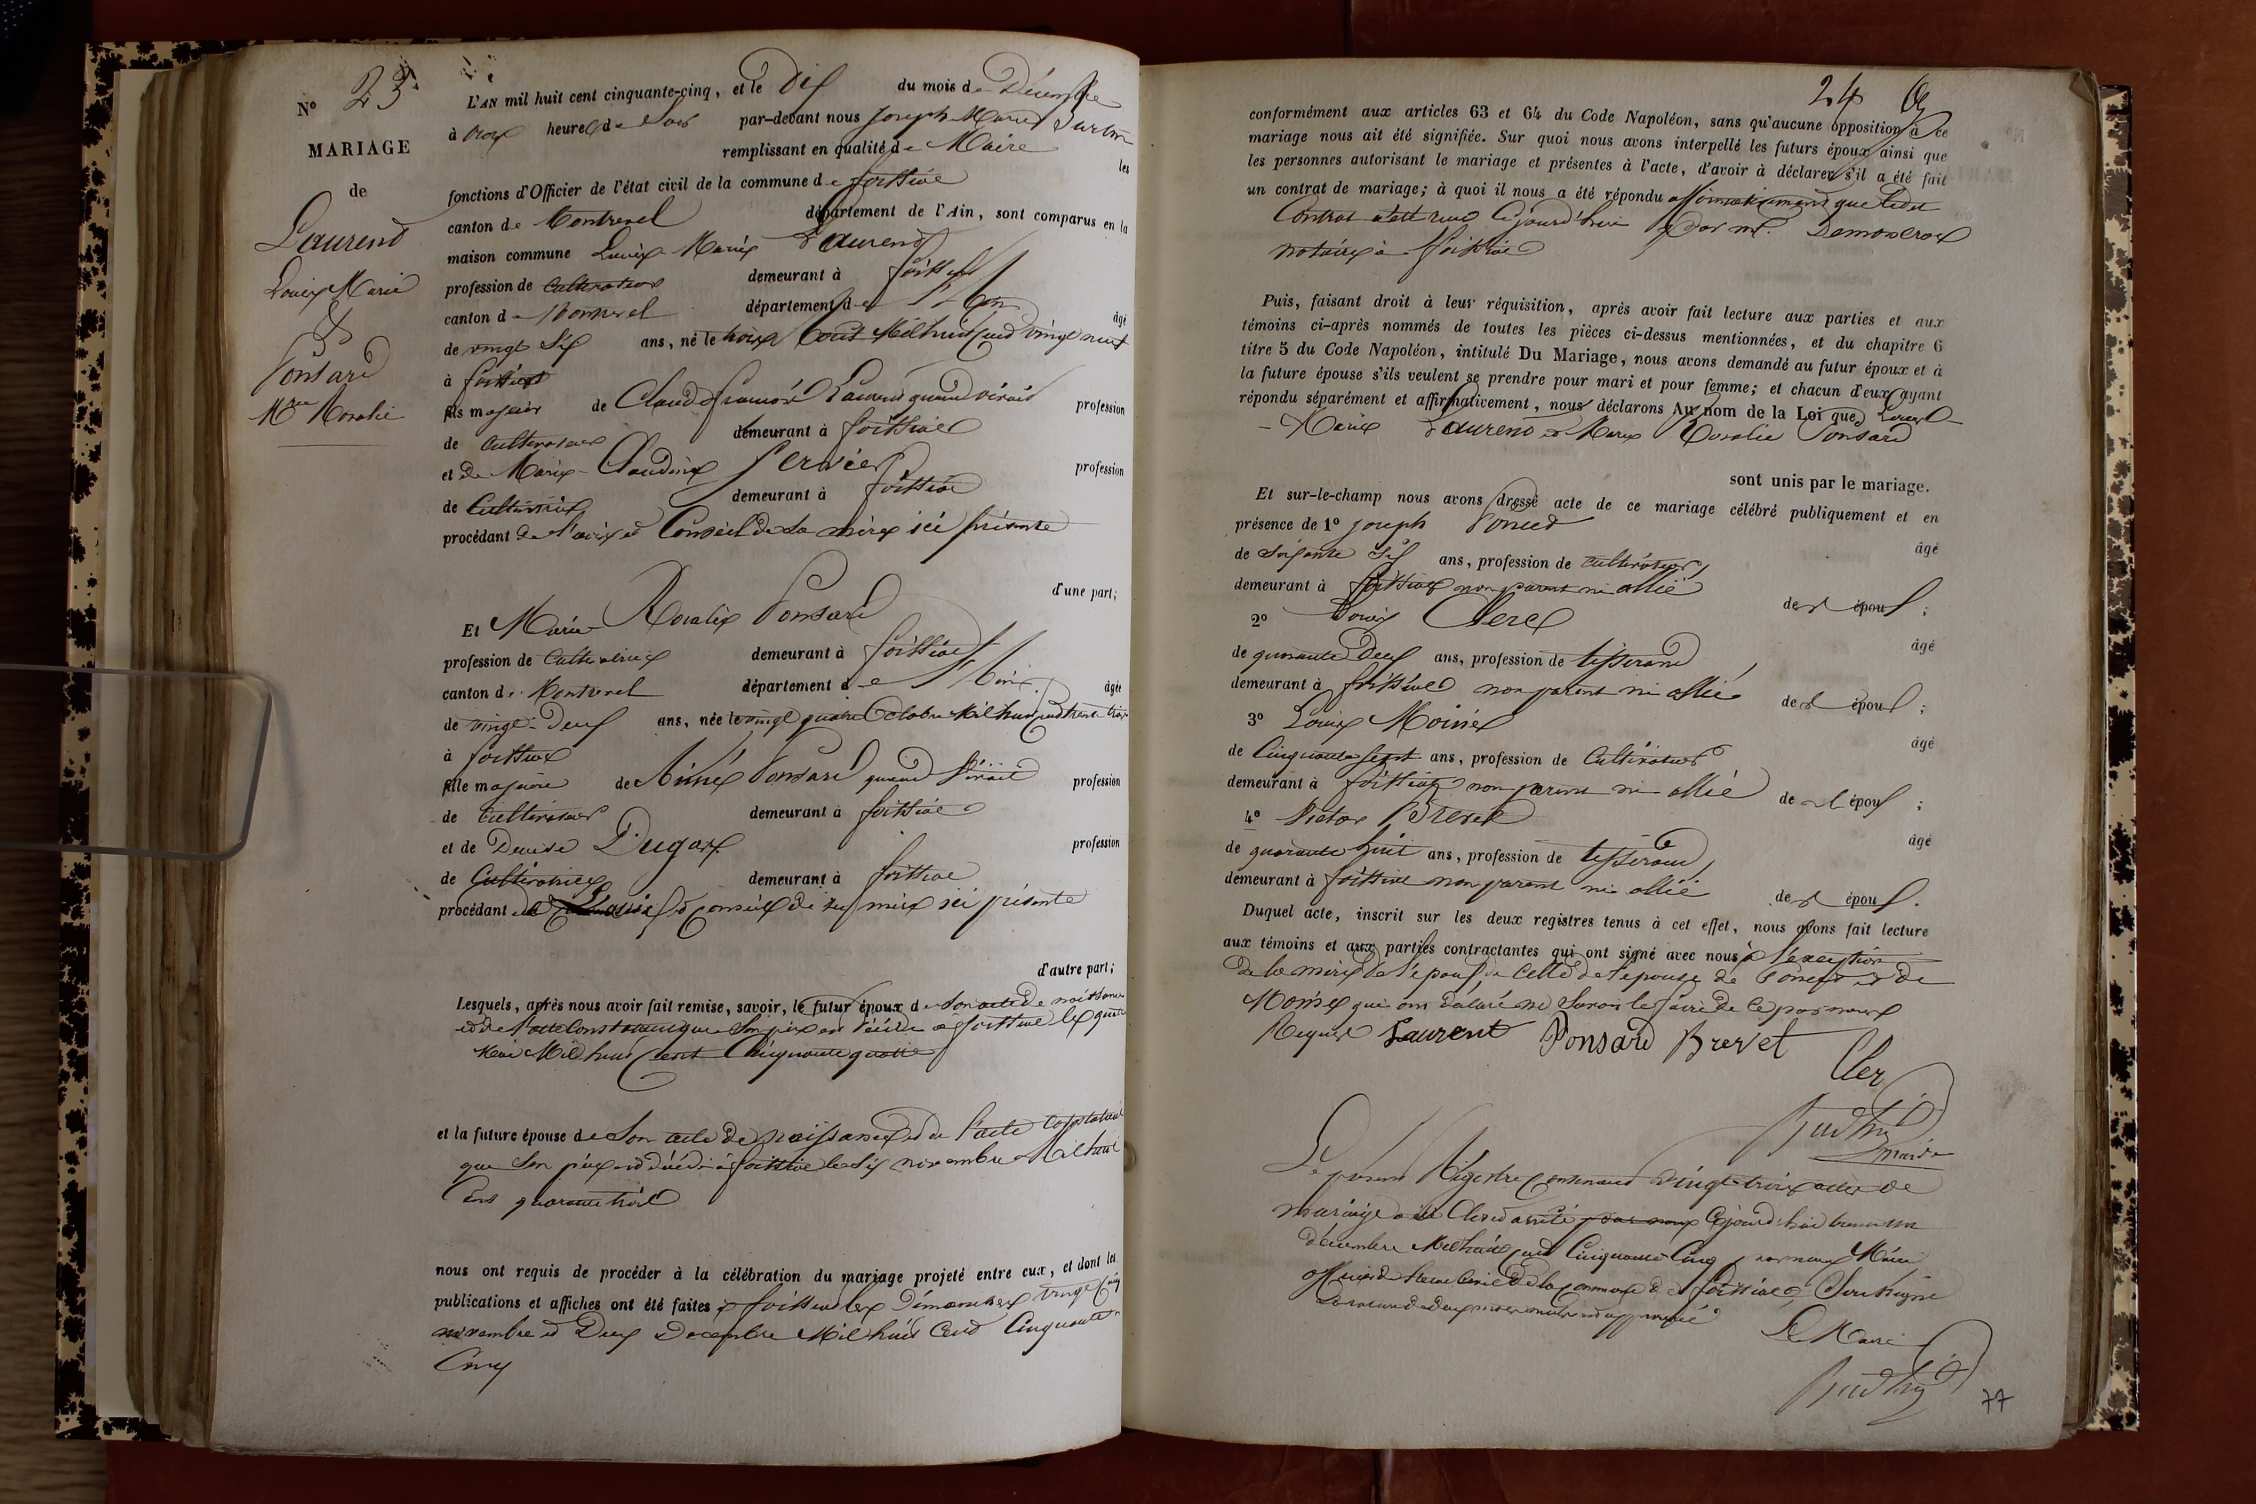 N° 23.
MARIAGE
de
Laurend
Louis Marie
&
Ponsard
Mie Rosalie
L'AN mil huit cent cinquante-cinq, et le Dix du mois de Décembre
à trois heures du Soir par-devant nous Joseph Marie
remplissant en qualité de Maire les
fonctions d'Officier de l'état civil de la commune de foissiat
canton de Montrevel département de l'Ain, sont comparus en la
maison commune Louis Marie Laurend
profession de Cultivateur demeurant à foissiat
canton de Montrevel département de l'Ain âgé
de vingt Six ans, né le trois Août Mil huit Cend vingt neuf
à foissiat
fils majeur de Claude françois Laurend quand vivait profession
de Cultivateur demeurant à foissiat
et de Marie Claudine profession
de Cultivatrice demeurant à foissiat
procédant de l'avis et Conseil de Sa mère ici présente
d'une part;
Et Marie Rosalie Ponsard
profession de Cultivatrice demeurant à foissiat
canton de Montrevel département de l'Ain âgée
de vingt-Deux ans, née le vingt quatre Octobre Mil huit cend trente trois
à foissiat
fille majeure de Aimé Ponsard quand vivait profession
de Cultivateur demeurant à foissiat
et de Denise Dugas profession
de Cultivatrice demeurant à foissiat
procédant de l'avis et conseil de sa mère ici présente
d'autre part;
Lesquels, après nous avoir fait remise, savoir, le futur époux de Son acte de naissance
et de l'acte Constatant que Son père est Décédé à foissiat le quatre
Mai Mil huit Cent Cinquante quatre
et la future épouse de Son acte de Naissance et de l'acte Constatant
que Son père est décédé à foissiat le Six novembre Mil huit
Cent quarante trois
nous ont requis de procéder à la célébration du mariage projeté entre eux, et dont les
publications et affiches ont été faites à foissiat les Dimanches vingt Cinq
novembre et Deux Décembre Mil huit Cend Cinquante
Cinq
24
conformément aux articles 63 et 64 du Code Napoléon, sans qu'aucune opposition à ce
mariage nous ait été signifiée. Sur quoi nous avons interpellé les futurs époux ainsi que
les personnes autorisant le mariage et présentes à l'acte, d'avoir à déclarer s'il a été fait
un contrat de mariage; à quoi il nous a été répondu affirmativement que ledit
Contrat a été reçu Cejourd'hui par me.
notaire à foissiat
Puis, faisant droit à leur réquisition, après avoir fait lecture aux parties et aux
témoins ci-après nommés de toutes les pièces ci-dessus mentionnées, et du chapitre 6
titre 5 du Code Napoléon, intitulé Du Mariage, nous avons demandé au futur époux et à
la future épouse s'ils veulent se prendre pour mari et pour femme; et chacun d'eux ayant
répondu séparément et affirmativement, nous déclarons Au nom de la Loi que Louis
Marie Laurend et Marie Rosalie Ponsard
sont unis par le mariage.
Et sur-le-champ nous avons dressé acte de ce mariage célébré publiquement et en
présence de 1° Joseph Poncet âgé
de Soixante Six ans, profession de Cultivateur
demeurant à foissiat non parent ni allié des époux;
2° Louis Clerc âgé
de quarante Deux ans, profession de tisserand
demeurant à foissiat non parent ni allié des époux;
3° Louis Moine âgé
de Cinquante Sept ans, profession de Cultivateur
demeurant à foissiat non parent ni allié des époux;
4° Victor Brevet âgé
de quarante huit ans, profession de tisserand
demeurant à foissiat non parent ni allié des époux.
Duquel acte, inscrit sur les deux registres tenus à cet effet, nous avons fait lecture
aux témoins et aux parties contractantes qui ont signé avec nous à l'exception
de la mère de l'époux de Celle de l'épouse de Poncet et de
Moine qui ont déclaré ne Savoir le faire de ce par nous
Requis Laurent Ponsard Brevet
Cler
maire
Le présent Régistre Contenant vingt trois actes de
mariage a été Clos et arrêté par nous Cejourd'hui trente un
décembre Mil huit cend Cinquante Cinq par nous Maire
officier de l'état Civil de la Commune de foissiat Soussigné
Le Maire
77